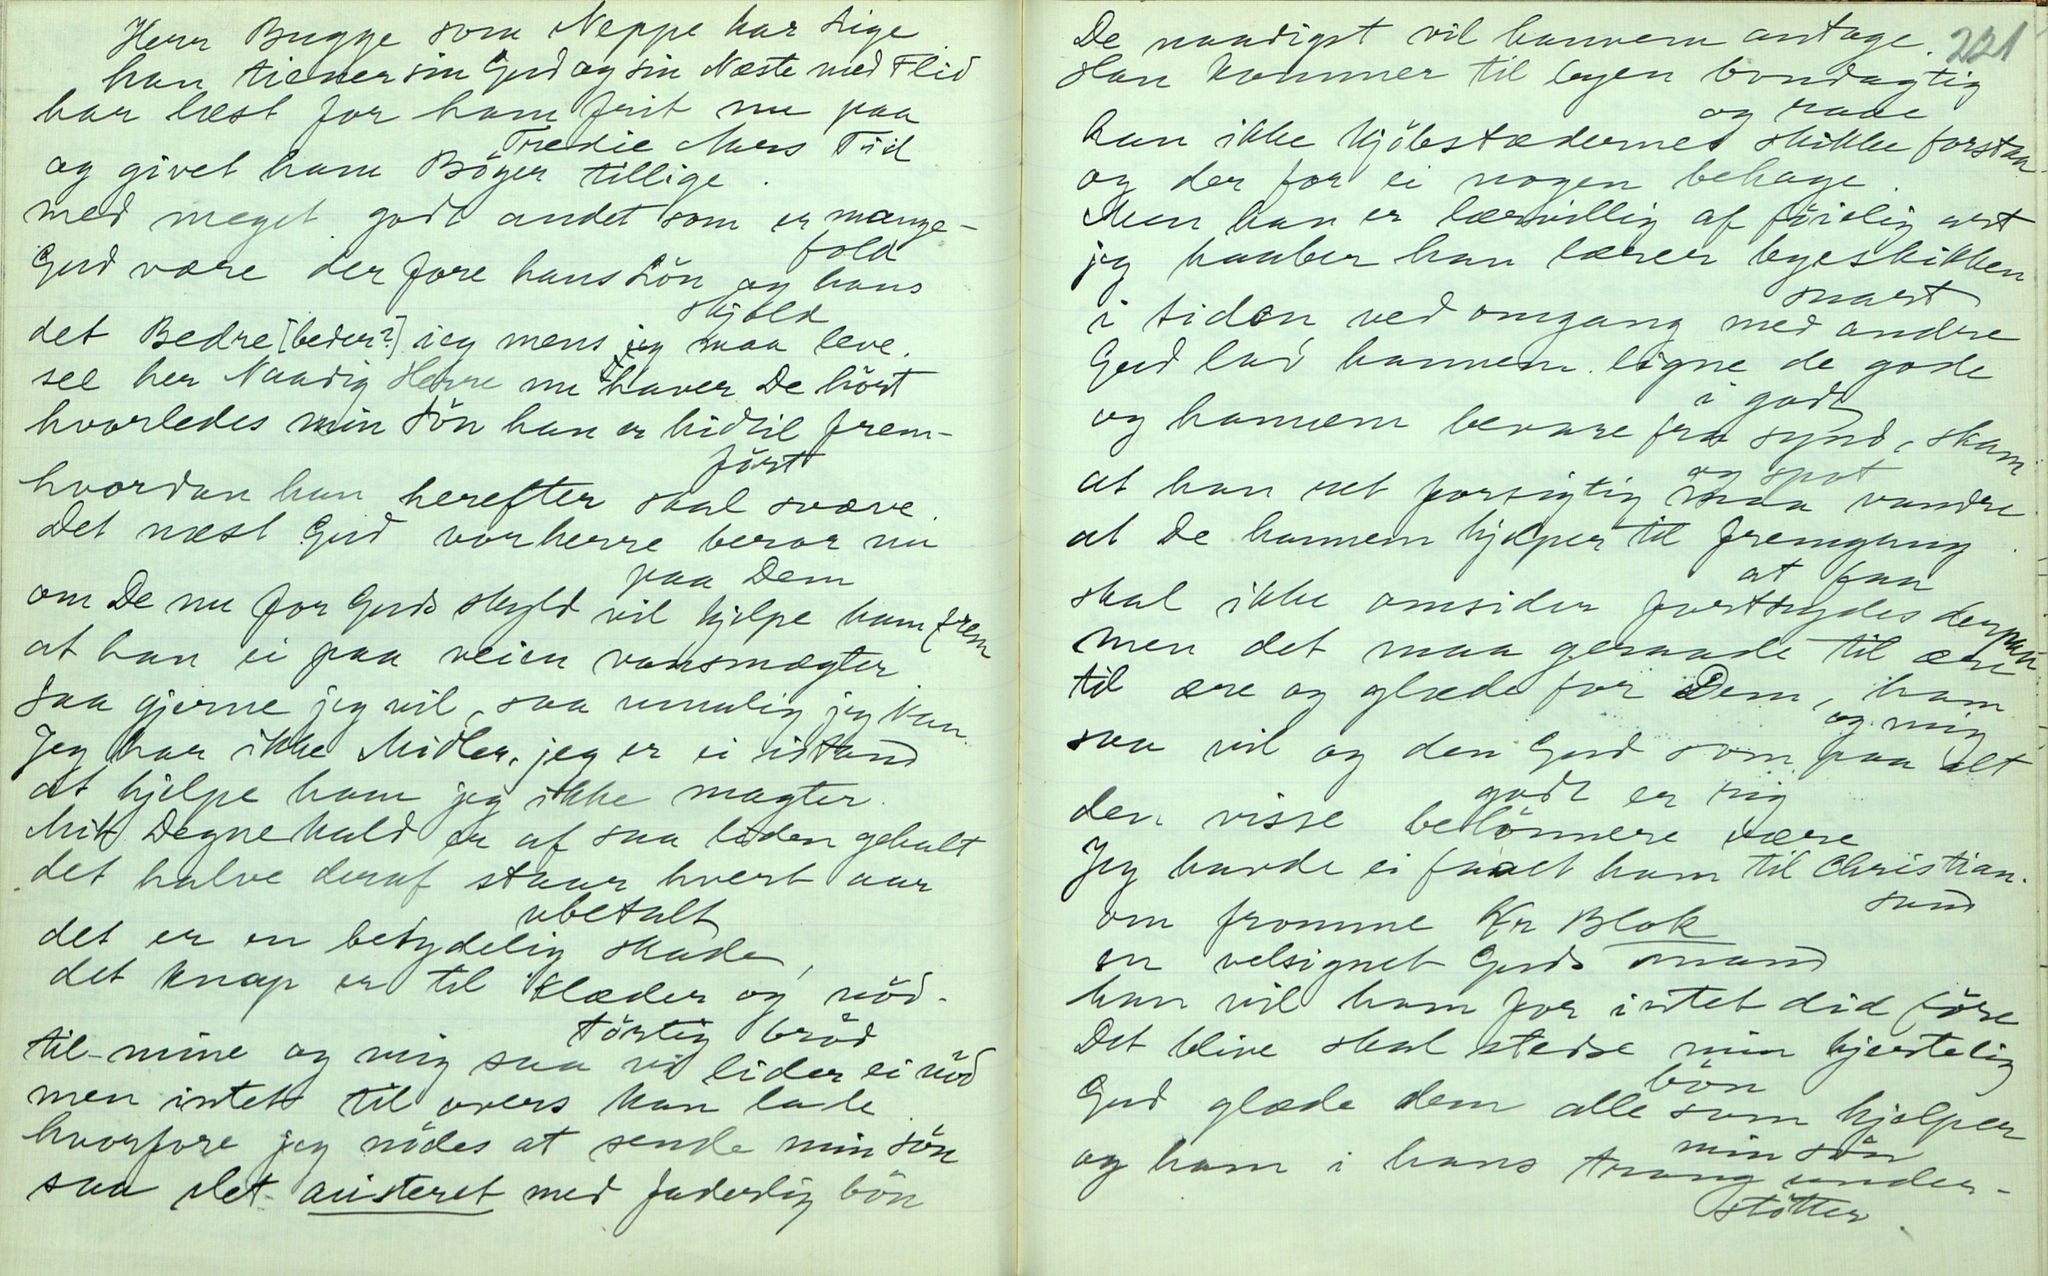 Herr Bugge som Neppe har Lige
han tiener sin Gud og sin Næste med Flid
har læst for ham frit nu paa
Tredie Aars Tid
og givet ham Böger tillige.
med meget godt andet som er mange-
fold
Gud være der fore hans Lön og hans
skjold
det Bedre [beder?] ieg mens jeg maa leve.
see her Naadig Herre nu haver De hört
hvorledes min Sön han er hidtil frem-
fört
hvordan han herefter skal svæve.
Det næst Gud vorherre beror nu
paa Dem
om De nu for Guds skyld vil hjelpe ham frem
at han ei paa veien vansmægter
saa gjerne jeg vil, saa umulig jeg kan.
Jeg har ikke Midler. jeg er ei istand
at hjelpe ham jeg ikke magter.
Mit Degnekald er af saa liden gehalt
det halve deraf staar hvert aar
ubetalt
det er en betydelig skade,
det knap er til Klæder og nöd-
törtig bröd
til mine og mig saa vi lider ei nöd
men intet til overs kan lade.
hvorfore jeg nödes at sende min sön
saa slet austeret med faderlig bön
De naadigst vil hannem antage. 221
Han kommer til byen bondagtig
og raae
kan ikke kjöbstædernes skikke forstaa
og der for ei nogen behage.
Men han er lærvillig af föielig art
jeg haaber han lærer byeskikken
snart
i tiden ved omgang med andre
Gud lad hannem ligne de gode
i godt
og hannem bevare fra synd, skam
og spot
at han ret forsigtig maa vandre.
at De hannem hjelper til fremgang
at faa
skal ikke omsider fortrydes derpaa
men det maa geraade til ære
til ære og glæde for Dem, ham
og mig
saa vil og den Gud som paa alt
godt er rig
den visse belönnere være
Jeg havde ei faaet ham til Christian-
sand
om fromme Hr Blok
en velsignet Guds mand
han vil ham for intet did före
Det blive skal stedse min hjertelig
bön
Gud glæde dem alle som hjelper
min sön
og ham i hans trang under-
stötter.